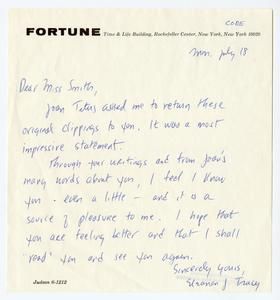 CORE
FORTUNE Time & Life Building, Rockefeller Center, New York, New York 10020
Mon. July 13
Dear Miss Smith,
Joan Titus asked me to return these
original clippings to you. It was a most
impressive statement.
Through your writings and from Joan's
many words about you, I feel I know
you - even a little - and it is a
source of pleasure to me. I hope that
you are feeling better and that I shall
"read" you and see you again.
Sincerely yours,
Eleanor J Tracy
Judson 6-1212